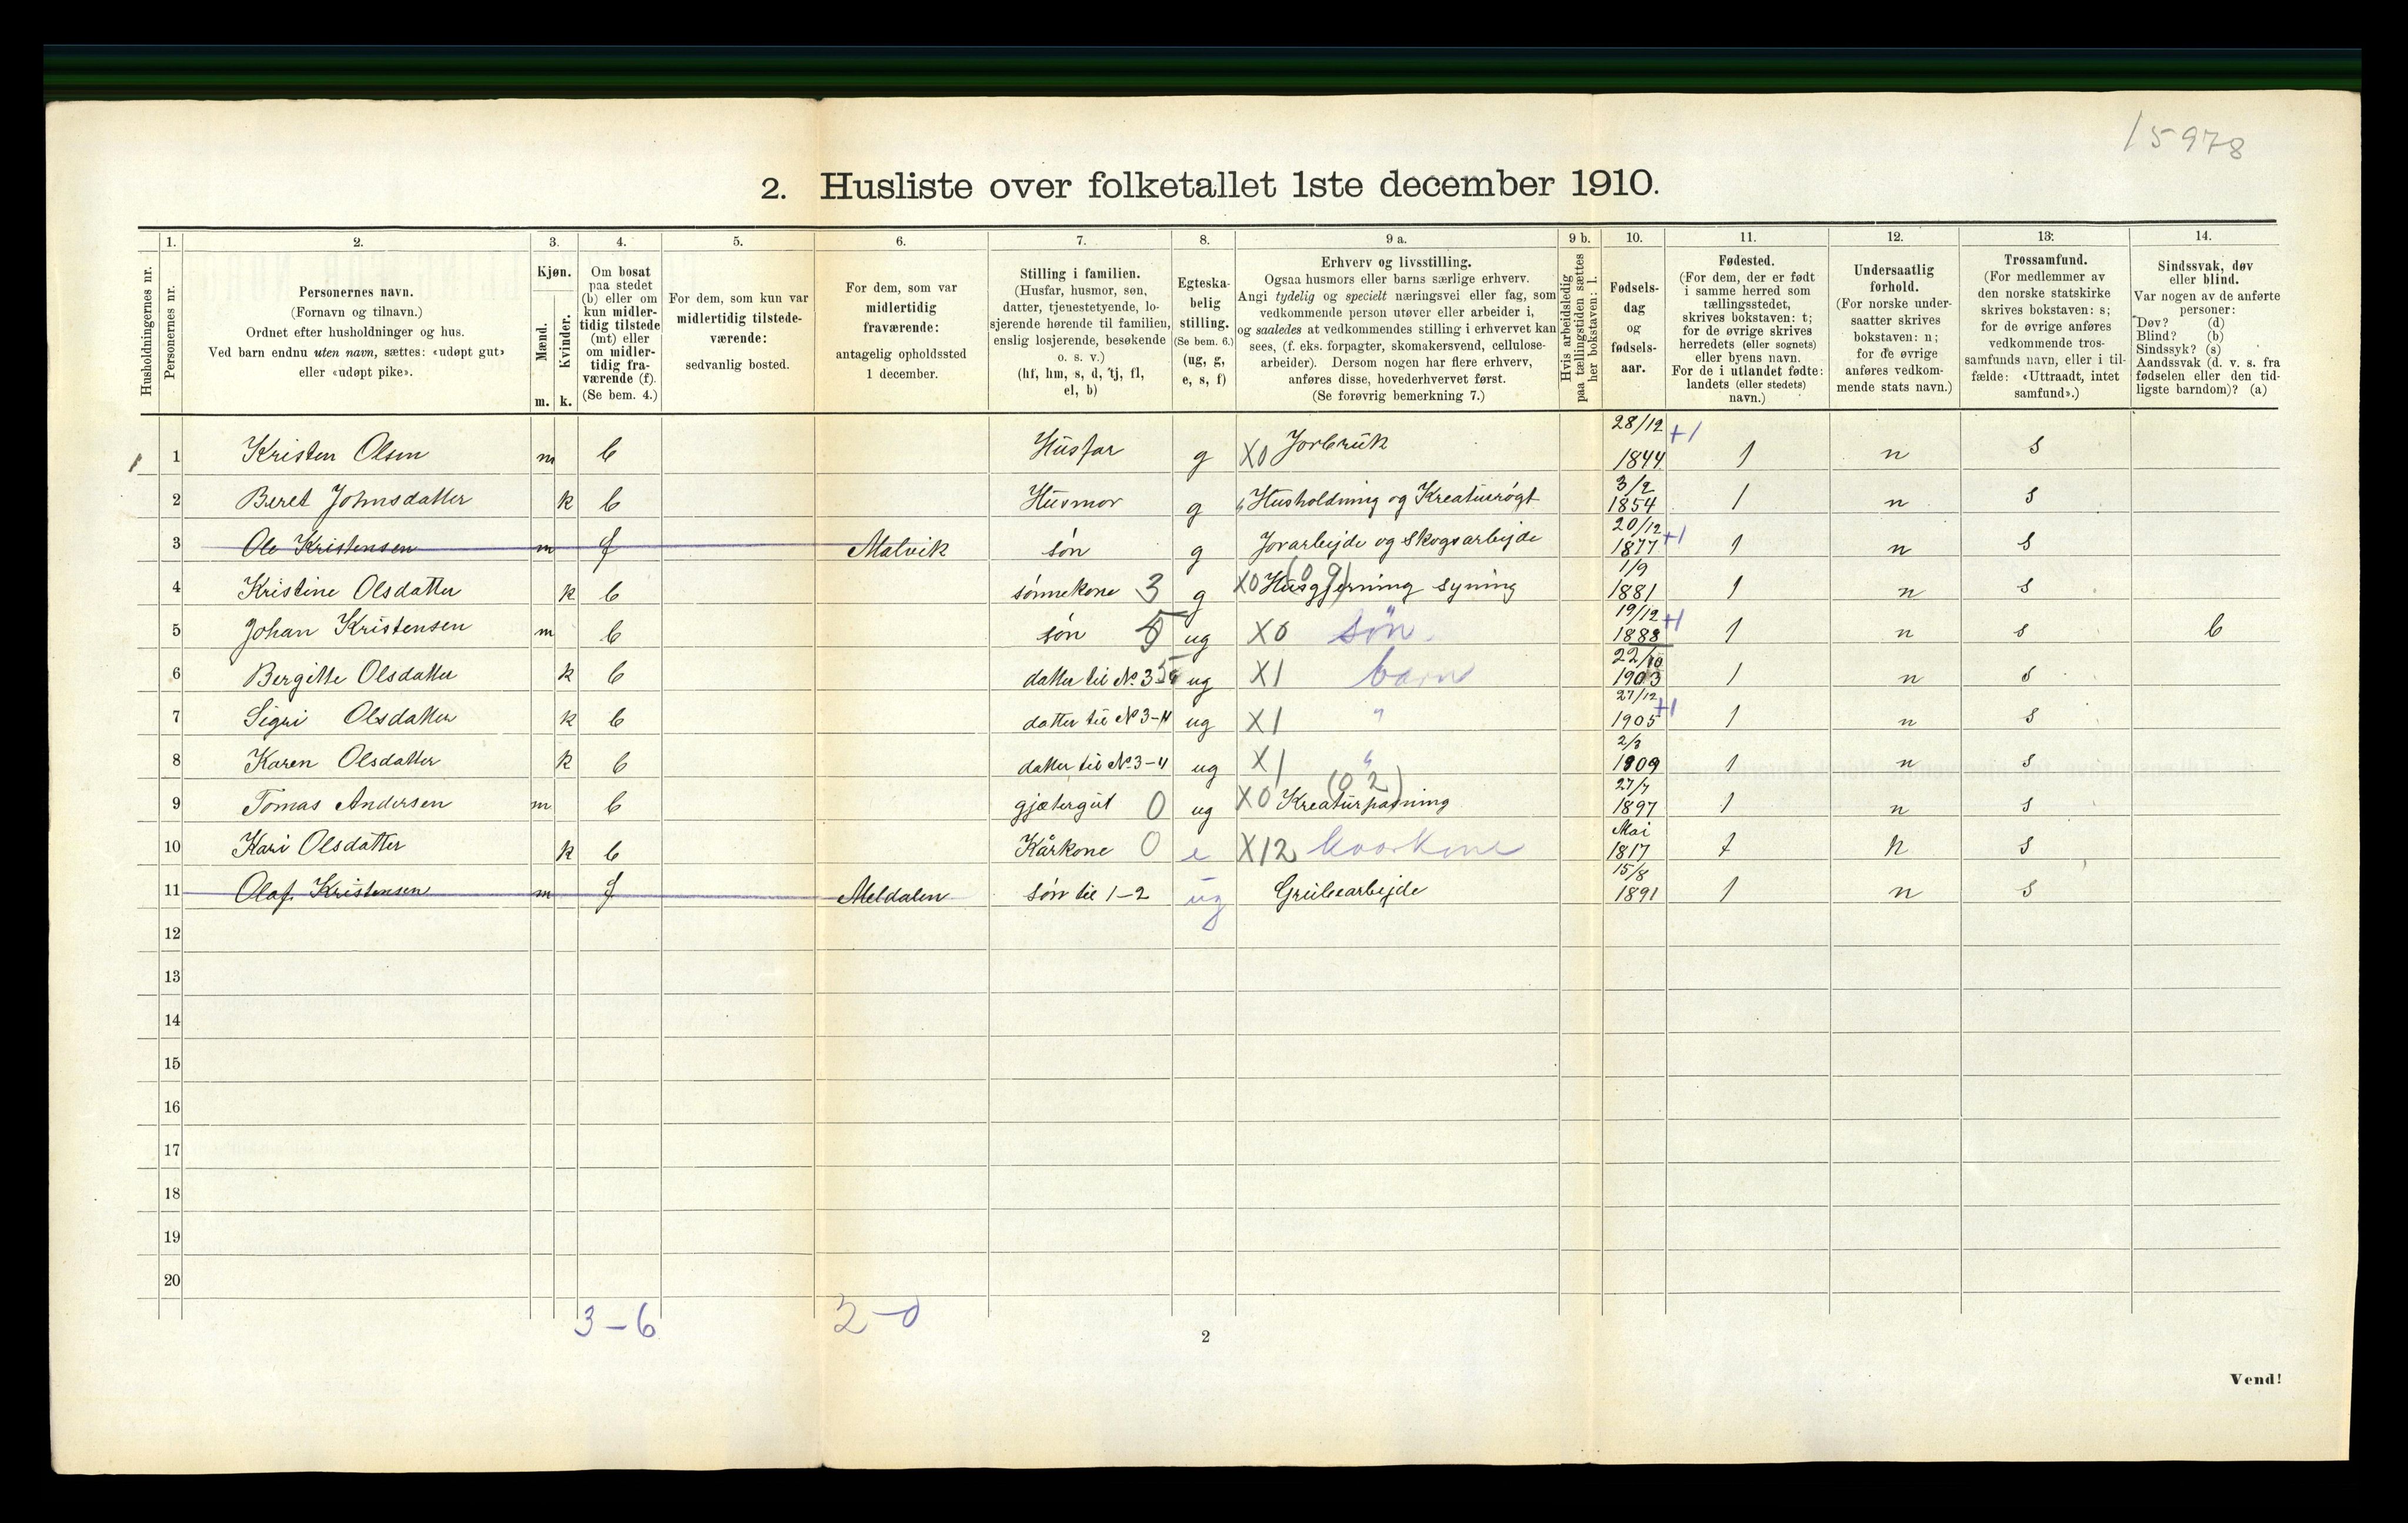 15978
2. Husliste over folketallet 1ste december 1910.
1. 2. 3. 4. 5. 6. 7. 8. 9 a. 9 b. 10. 11. 12. 13. 14.
Husholdningernes nr.
Personernes nr.
Personernes navn.
(Fornavn og tilnavn.)
Ordnet efter husholdninger og hus.
Ved barn endnu uten navn, sættes: «udøpt gut»
eller «udøpt pike».
Kjøn.
Mænd.
Kvinder.
m. k.
Om bosat
paa stedet
(b) eller om
kun midler-
tidig tilstede
(mt) eller
om midler-
tidig fra-
værende (f).
(Se bem. 4.)
For dem, som kun var
midlertidig tilstede-
værende:
sedvanlig bosted.
For dem, som var
midlertidig
fraværende:
antagelig opholdssted
1 december.
Stilling i familien.
(Husfar, husmor, søn,
datter, tjenestetyende, lo-
sjerende hørende til familien,
enslig losjerende, besøkende
o. s. v.)
(hf, hm, s, d, tj, fl,
el, b)
Egteska-
belig
stilling.
(Se bem. 6.)
(ug, g,
e, s, f)
Erhverv og livsstilling.
Ogsaa husmors eller barns særlige erhverv.
Angi tydelig og specielt næringsvei eller fag, som
vedkommende person utøver eller arbeider i,
og saaledes at vedkommendes stilling i erhvervet kan
sees, (f. eks. forpagter, skomakersvend, cellulose-
arbeider). Dersom nogen har flere erhverv,
anføres disse, hovederhvervet først.
(Se forøvrig bemerkning 7.)
Hvis arbeidsledig
paa tællingstiden sættes
her bokstaven: l.
Fødsels-
dag
og
fødsels-
aar.
Fødested.
(For dem, der er født
i samme herred som
tællingsstedet,
skrives bokstaven: t;
for de øvrige skrives
herredets (eller sognets)
eller byens navn.
For de i utlandet fødte:
landets (eller stedets)
navn.)
Undersaatlig
forhold.
(For norske under-
saatter skrives
bokstaven: n;
for de øvrige
anføres vedkom-
mende stats navn.)
Trossamfund.
(For medlemmer av
den norske statskirke
skrives bokstaven: s;
for de øvrige anføres
vedkommende tros-
samfunds navn, eller i til-
fælde: «Uttraadt, intet
samfund».)
Sindssvak, døv
eller blind.
Var nogen av de anførte
personer:
Døv? (d)
Blind? (b)
Sindssyk? (s)
Aandssvak (d. v. s. fra
fødselen eller den tid-
ligste barndom)? (a)
1 1 Kristen Olsen m b Husfar g X0 Jorbruk 28/12 1844 +1 1 n s
2 Beret Johnsdatter k b Husmor g Husholdning og Kreaturrøgt 3/2 1854 1 n s
3 Ole Kristensen m f Malvik søn g Jorarbejde og Skogsarbejde 20/12 1877 +1 1 n s
4 Kristine Olsdatter k b sønnekone 3 g X0 Husgjerning syning (0 9) 1/9 1881 1 n s
5 Johan Kristensen m b søn ug X0 søn 19/12 1888 +1 1 n s b
6 Bergitte Olsdatter k b datter til No 3 ug X1 barn 22/10 1903 1 n s
7 Sigri Olsdatter k b datter til No 3-4 ug X1 " 27/12 1905 +1 1 n s
8 Karen Olsdatter k b datter til No 3-4 ug X1 " 2/3 1909 1 n s
9 Tomas Andersen m b gjætergut 0 ug X0 Kreaturpasning (0 2) 27/7 1897 1 n s
10 Kari Olsdatter k b Kårkone 0 e X12 kaarkone Mai 1817 t n s
11 Olaf Kristensen m f Meldalen søn til 1-2 ug Grubearbejde 15/8 1891 1 n s
12
13
14
15
16
17
18
19
20
3-6 2-0
2
Vend!